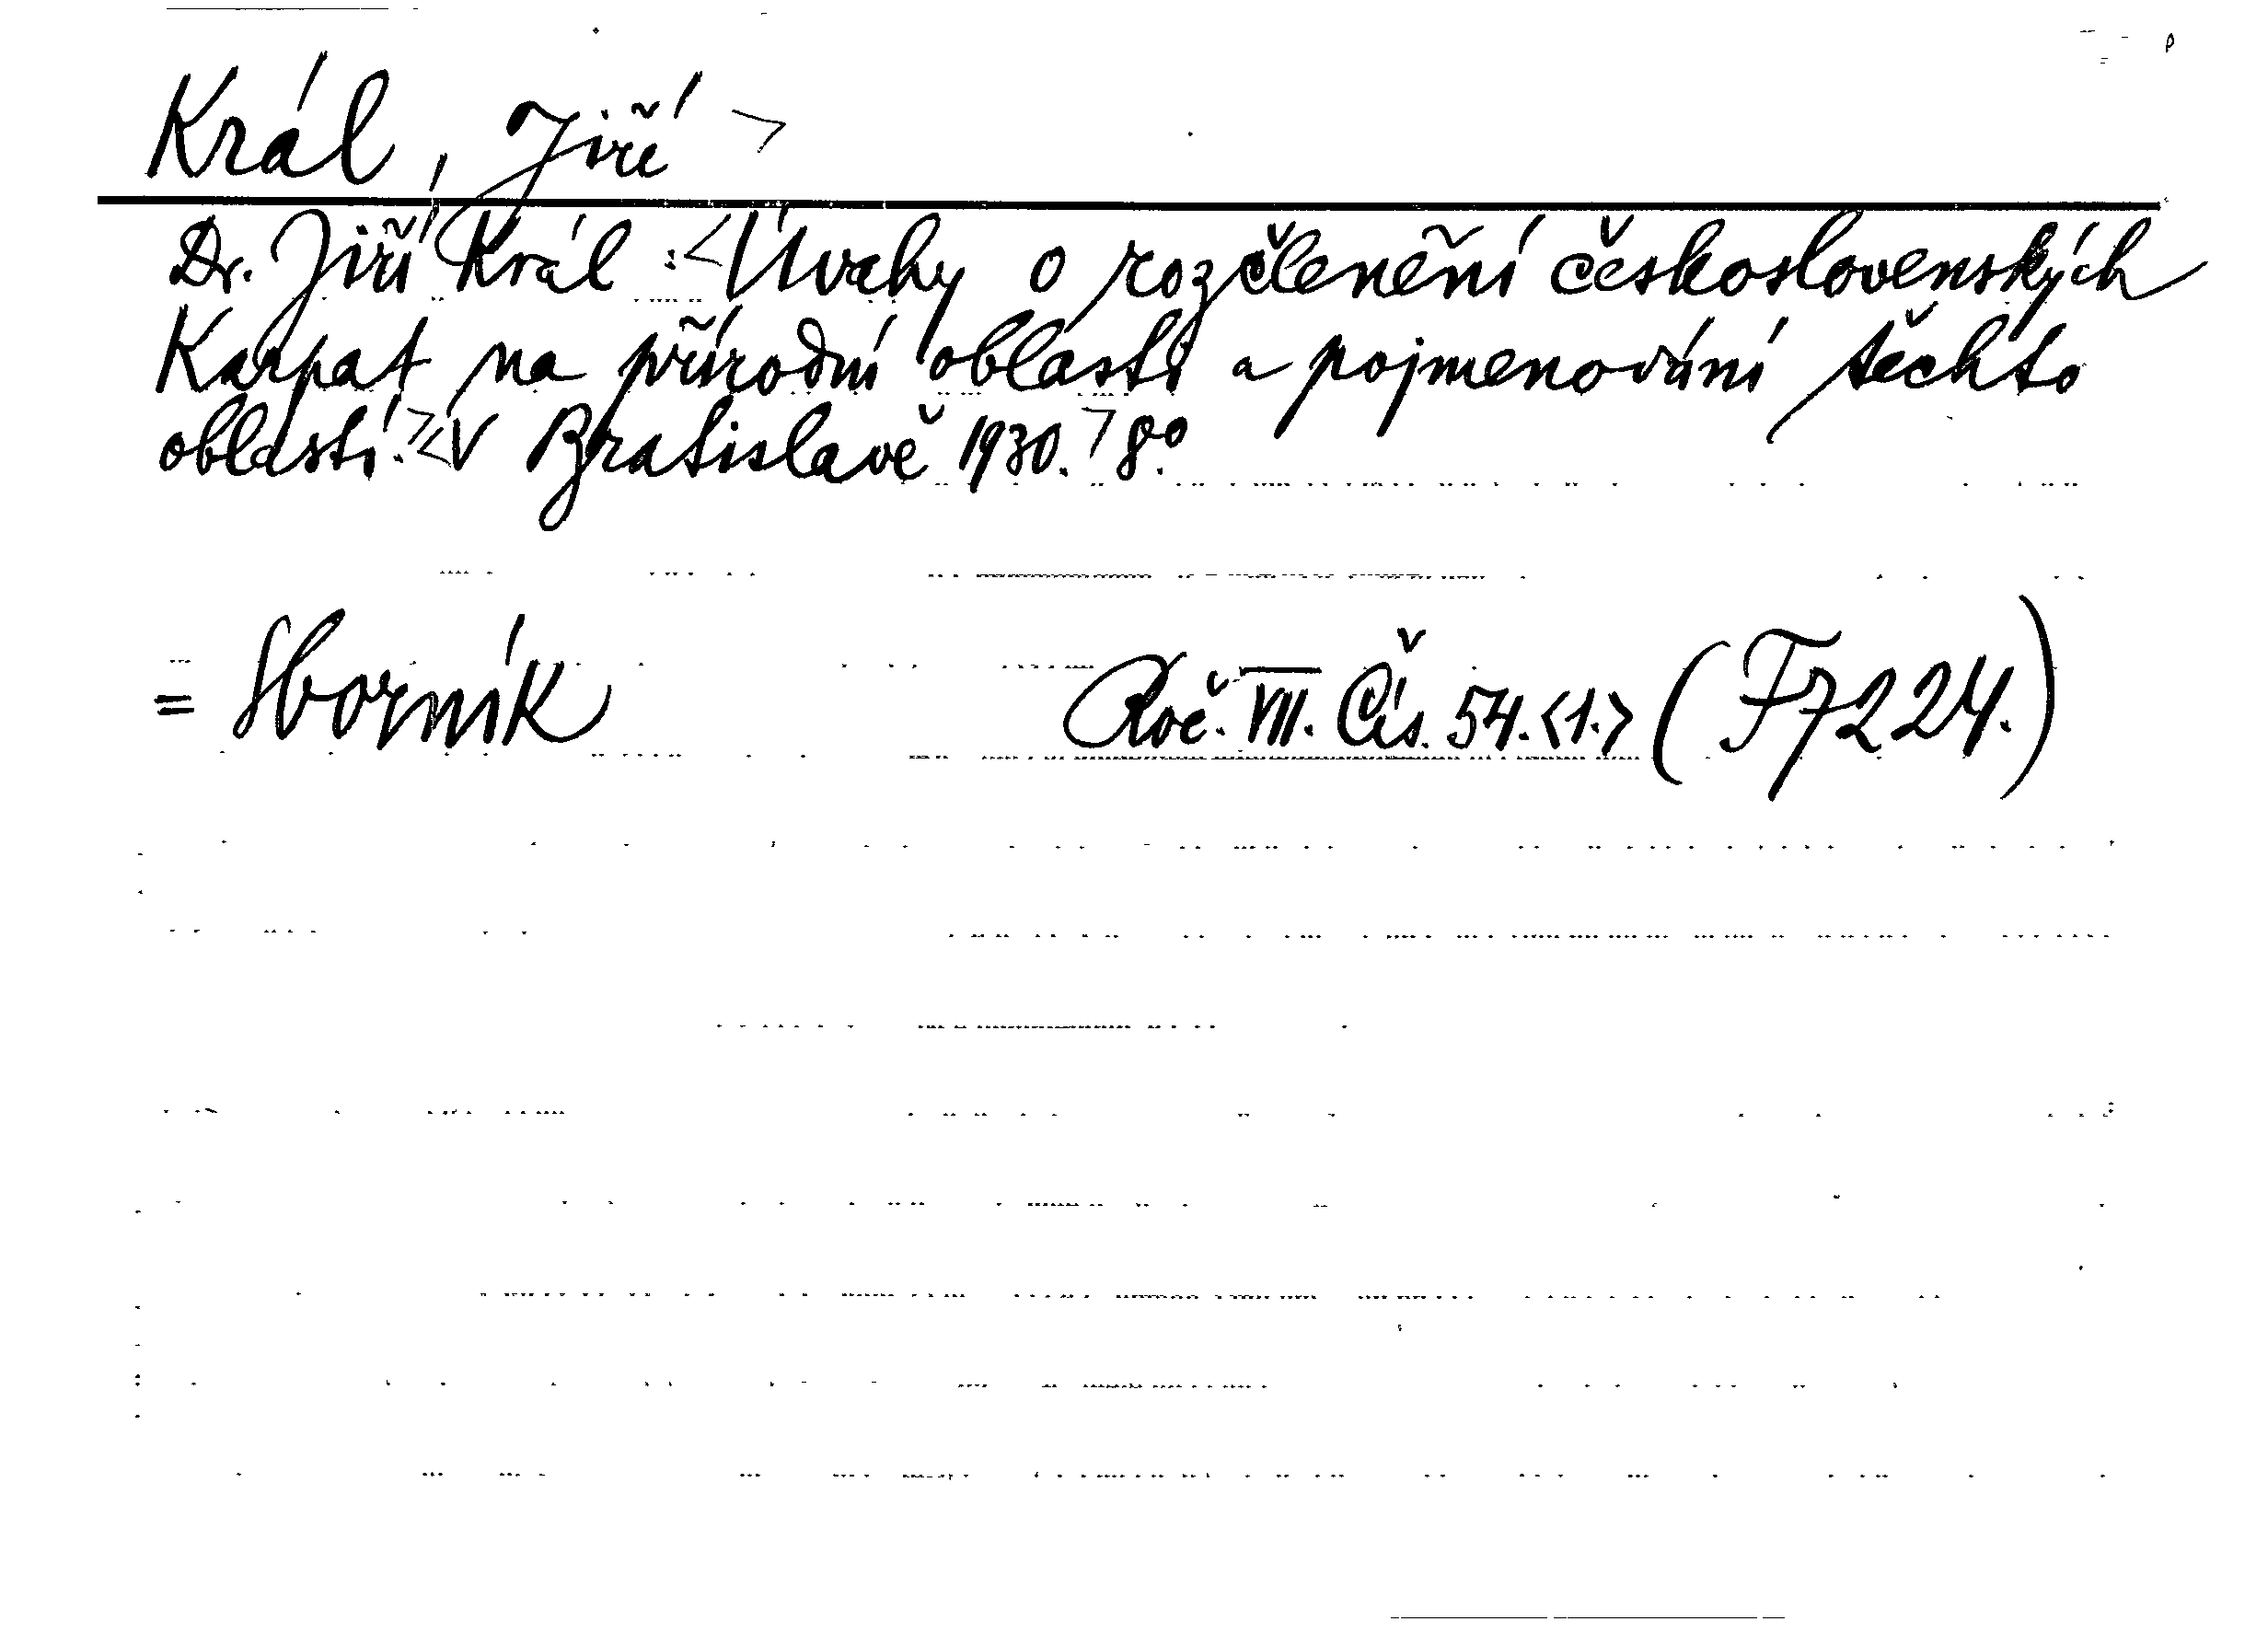 Král, Jiří >
Dr. Jiří Král: <Úvahy o rozčlenění československých
Karpat na přírodní oblasti a pojmenování těchto
oblastí.> <V Bratislavě 1930.> 8.°
= Sborník Roč. VII. Čís. 54. <1.> (F7224.)